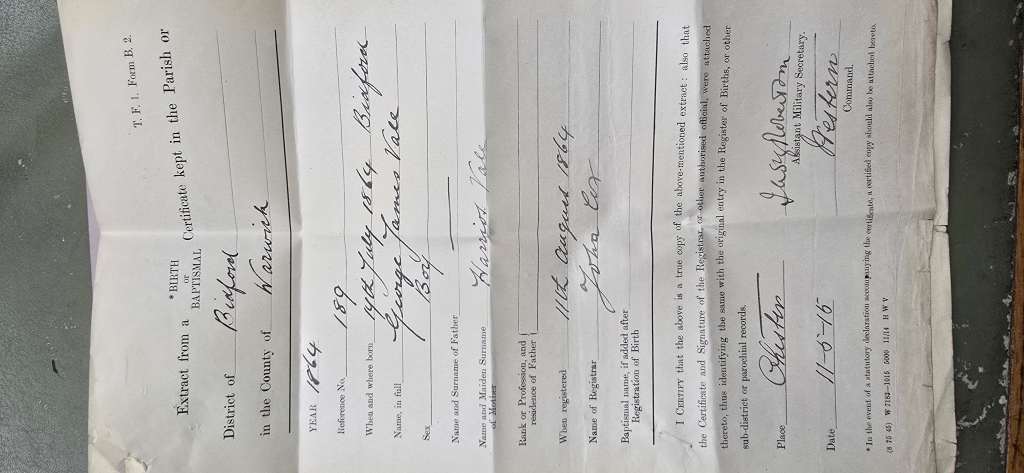 T. F. 1. Form B. 2.
Extract from a *BIRTH or BAPTISMAL Certificate kept in the Parish or
District of Bidford
in the County of Warwick
YEAR 1864
Reference No. 189
When and where born 19th July 1864 Bidford
Name, in full George James Vale
Sex Boy
Name and Surname of Father —
Name and Maiden Surname of Mother Harriot Vale
Rank or Profession, and residence of Father
When registered 11th August 1864
Name of Registrar John Cox
Baptismal name, if added after Registration of Birth
I CERTIFY that the above is a true copy of the above-mentioned extract: also that
the Certificate and Signature of the Registrar, or other authorised official, were attached
thereto, thus identifying the same with the original entry in the Register of Births, or other
sub-district or parochial records.
Place Chester
Assistant Military Secretary.
Date 11-5-15 Western
Command.
* In the event of a statutory declaration accompanying the certificate, a certified copy should also be attached hereto.
(8 75 45) W 7182—1015 5000 11/14 H W V